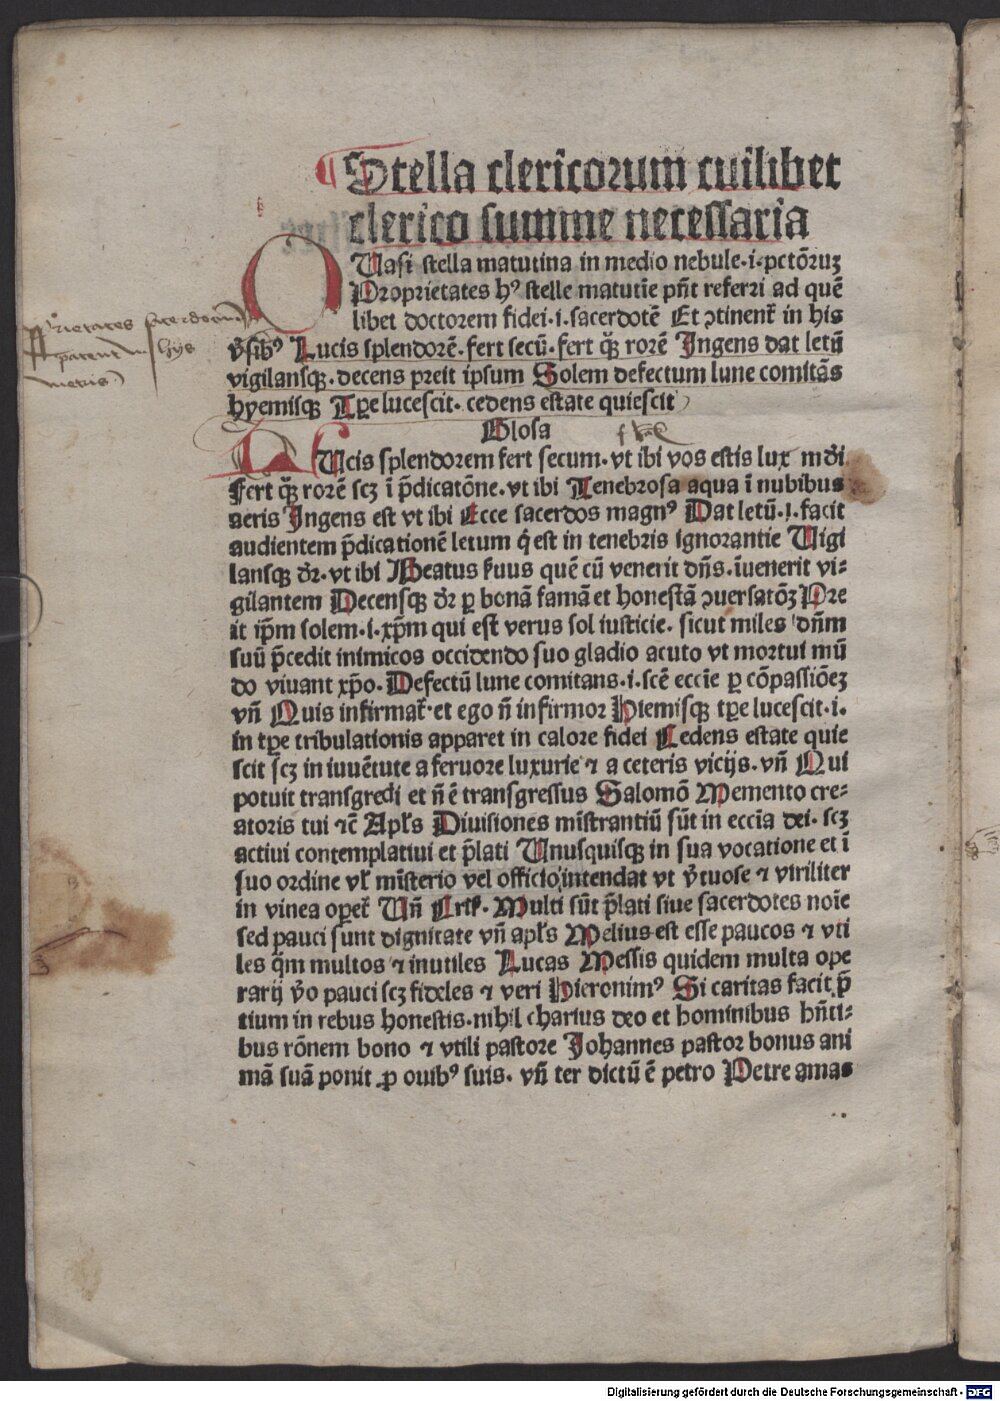 Stella clericorum cuilibet
clerico summe necessaria
QUasi stella matutina in medio nebule.i.pctōruꝫ
Proprietates hꝰ stelle matutīe pn̄t referri ad quē
libet doctorem fidei.i.sacerdotē Et ↄtinent᷑ in his
v̄sibꝰ Lucis splendorē.fert secū.fert qꝫ rorē Ingens dat letū
vigilansqꝫ.decens preit ipsum Solem defectum lune comitās
hyemisqꝫ Tꝑe lucescit.cedens estate quiescit
Glosa
LUcis splendorem fert secum.vt ibi vos estis lux mūdi
Fert qꝫ rorē scꝫ ī p̄dicatōne.vt ibi Tenebrosa aqua ī nubibus
aeris Ingens est vt ibi Ecce sacerdos magnꝰ Dat letū.i.facit
audientem p̄dicationē letum q̇ est in tenebris ignorantie Uigi
lansqꝫ dr̄.vt ibi Beatus ẜuus quē cū venerit dn̄s.īuenerit vi-
gilantem Decensqꝫ dr̄ ꝑ bonā famā et honestā ↄuersatōꝫ Pre
it ip̄m solem.i.xp̄m qui est verus sol iusticie. sicut miles dn̄m
suū p̄cedit inimicos occidendo suo gladio acuto vt mortui mū
do vivant xp̄o. Defectū lune comitans.i.scē ecc̄ie ꝑ cōpassiōeꝫ
vn̄ Quis infirmat᷑.et ego n̄ infirmor Hiemisqꝫ tꝑe lucescit.i.
in tꝑe tribulationis apparet in calore fidei Cedens estate quie
scit scꝫ in iuvētute a fervore luxurie ⁊ a ceteris vicijs.vn̄ Qui
potuit transgredi et n̄ ē transgressus Salomō Memento cre-
atoris tui ⁊c̄ Apl̄s Divisiones mīstrantiū sūt in ecc̄ia dei. scꝫ
activi contemplativi et p̄lati Unusquisqꝫ in sua vocatione et ī
suo ordine vl̄ mīsterio vel officio intendat vt v̄tuose ⁊ viriliter
in vinea oꝑet᷑ Un̄ Cris. Multi sūt p̄lati sive sacerdotes noīe
sed pauci sunt dignitate vn̄ apl̄s Melius est esse paucos ⁊ vti
les q̄m multos ⁊ inutiles Lucas Messis quidem multa ope
rarij v̄o pauci scꝫ fideles ⁊ veri Hieronimꝰ Si caritas facit p̄
tium in rebus honestis.nihil charius deo et hominibus hn̄ti-
bus rōnem bono ⁊ vtili pastore Johannes pastor bonus ani
mā suā ponit ꝓ ovibꝰ suis. vn̄ ter dictū ē petro Petre amas
Digitalisierung gefördert durch die Deutsche Forschungsgemeinschaft - DFG